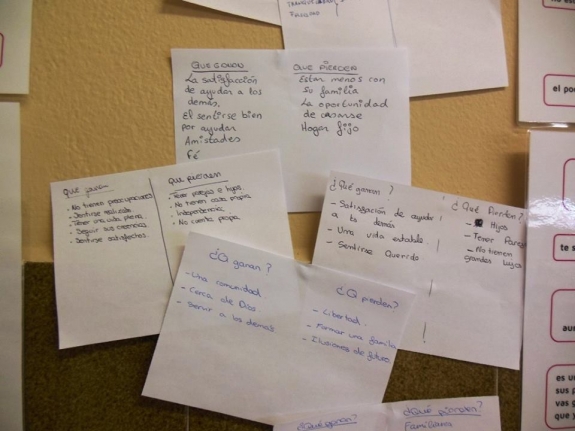 FAMILIAR
QUE GANAN
La satisfacción
de ayudar a los
demás.
El sentirse bien
por ayudar
Amistades
Fé
QUE PIERDEN
Estar menos con
su familia
La oportunidad
de casarse
Hogar fijo
QUE
- No tienen preocupaciones
- Sentirse realizado
- Tener una vida plena
- Seguir sus creencias
- Sentirse satisfechos.
QUE PIERDEN
- Tener pareja e hijos.
- No tienen casa propia
- Independencia.
- No cuenta propia.
¿Qué ganan?
- Satisfacción de ayudar
a ls demás
- Una vida estable
- Sentirse Querido
¿Qué Pierden?
- Hijos
- Tener Pareja
- No tienen
grandes lujos
¿Q ganan?
- Una comunidad
- Cerca de Dios.
- Servir a los demás
¿Q pierden?
- Libertad.
- Formar una familia
- Ilusiones de futuro.
¿Qué ganan?
¿Qué pierden?
Familiares
no es
el po
te s
aun
es u
sus p
vas g
que y